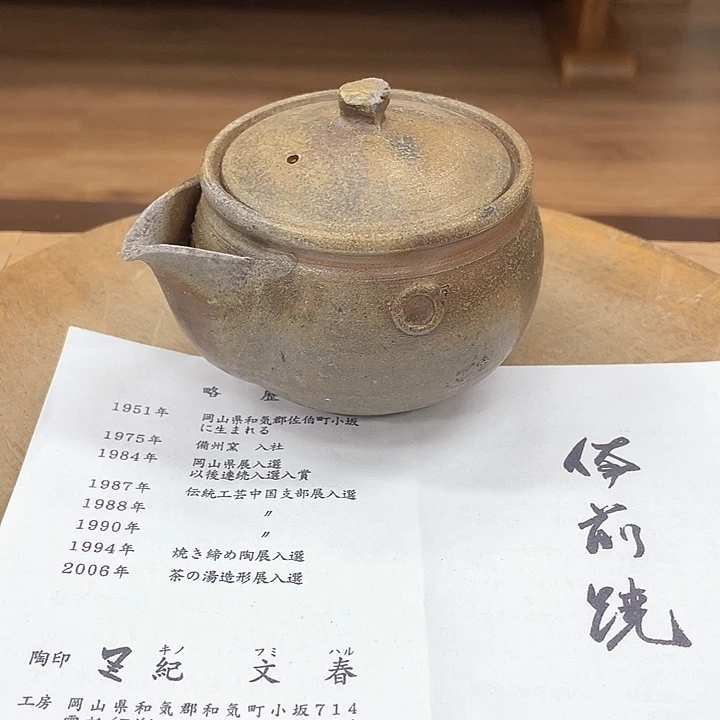 略 歴
1951年 岡山県和気郡佐伯町小坂
に生まれる
1975年 備州窯 入社
1984年 岡山県展入選
以後連続入選入賞
1987年 伝統工芸中国支部展入選
1988年 〃
1990年 〃
1994年 焼き締め陶展入選
2006年 茶の湯造形展入選
キノ フミ ハル
陶印 紀 文 春
工房 岡山県和気郡和気町小坂714
備
前
焼